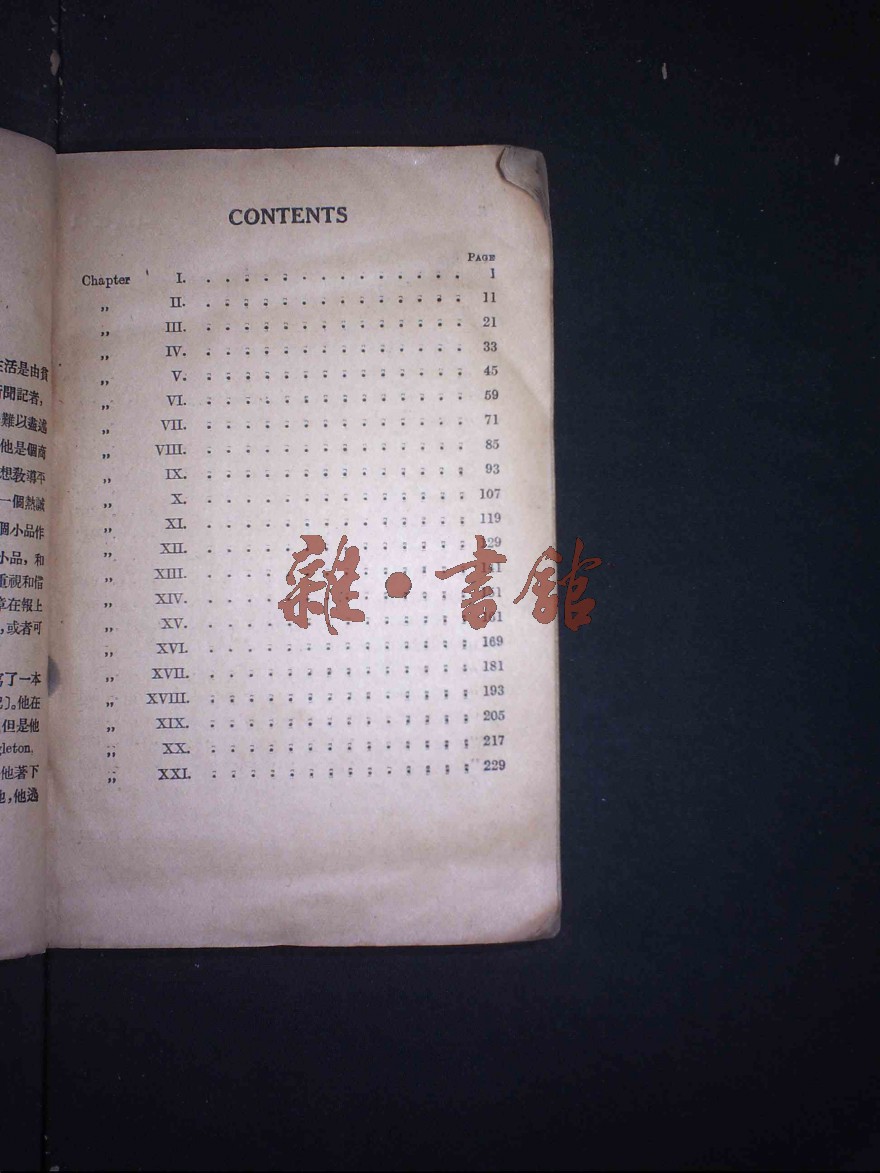 生活是由貧
新聞記者,
難以盡述
他是個商
想敎導平
一個熱誠
個小品作
小品,和
重視和信
章在報上
,或者可
寫了一本
記〕。他在
但是他
gleton,
他著下
他,他逃
CONTENTS
PAGE
Chapter I. . . . . . . . . . . . . . 1
,, II. . . . . . . . . . . . . . 11
,, III. . . . . . . . . . . . . . 21
,, IV. . . . . . . . . . . . . . 33
,, V. . . . . . . . . . . . . . 45
,, VI. . . . . . . . . . . . . . 59
,, VII. . . . . . . . . . . . . . 71
,, VIII. . . . . . . . . . . . . . 85
,, IX. . . . . . . . . . . . . . 93
,, X. . . . . . . . . . . . . . 107
,, XI. . . . . . . . . . . . . . 119
,, XII. . . . . . . . . . . . . . 129
,, XIII. . . . . . . . . . . . . . 141
,, XIV. . . . . . . . . . . . . . 151
,, XV. . . . . . . . . . . . . . 161
,, XVI. . . . . . . . . . . . . . 169
,, XVII. . . . . . . . . . . . . . 181
,, XVIII. . . . . . . . . . . . . . 193
,, XIX. . . . . . . . . . . . . . 205
,, XX. . . . . . . . . . . . . . 217
,, XXI. . . . . . . . . . . . . . 229
雜·書館